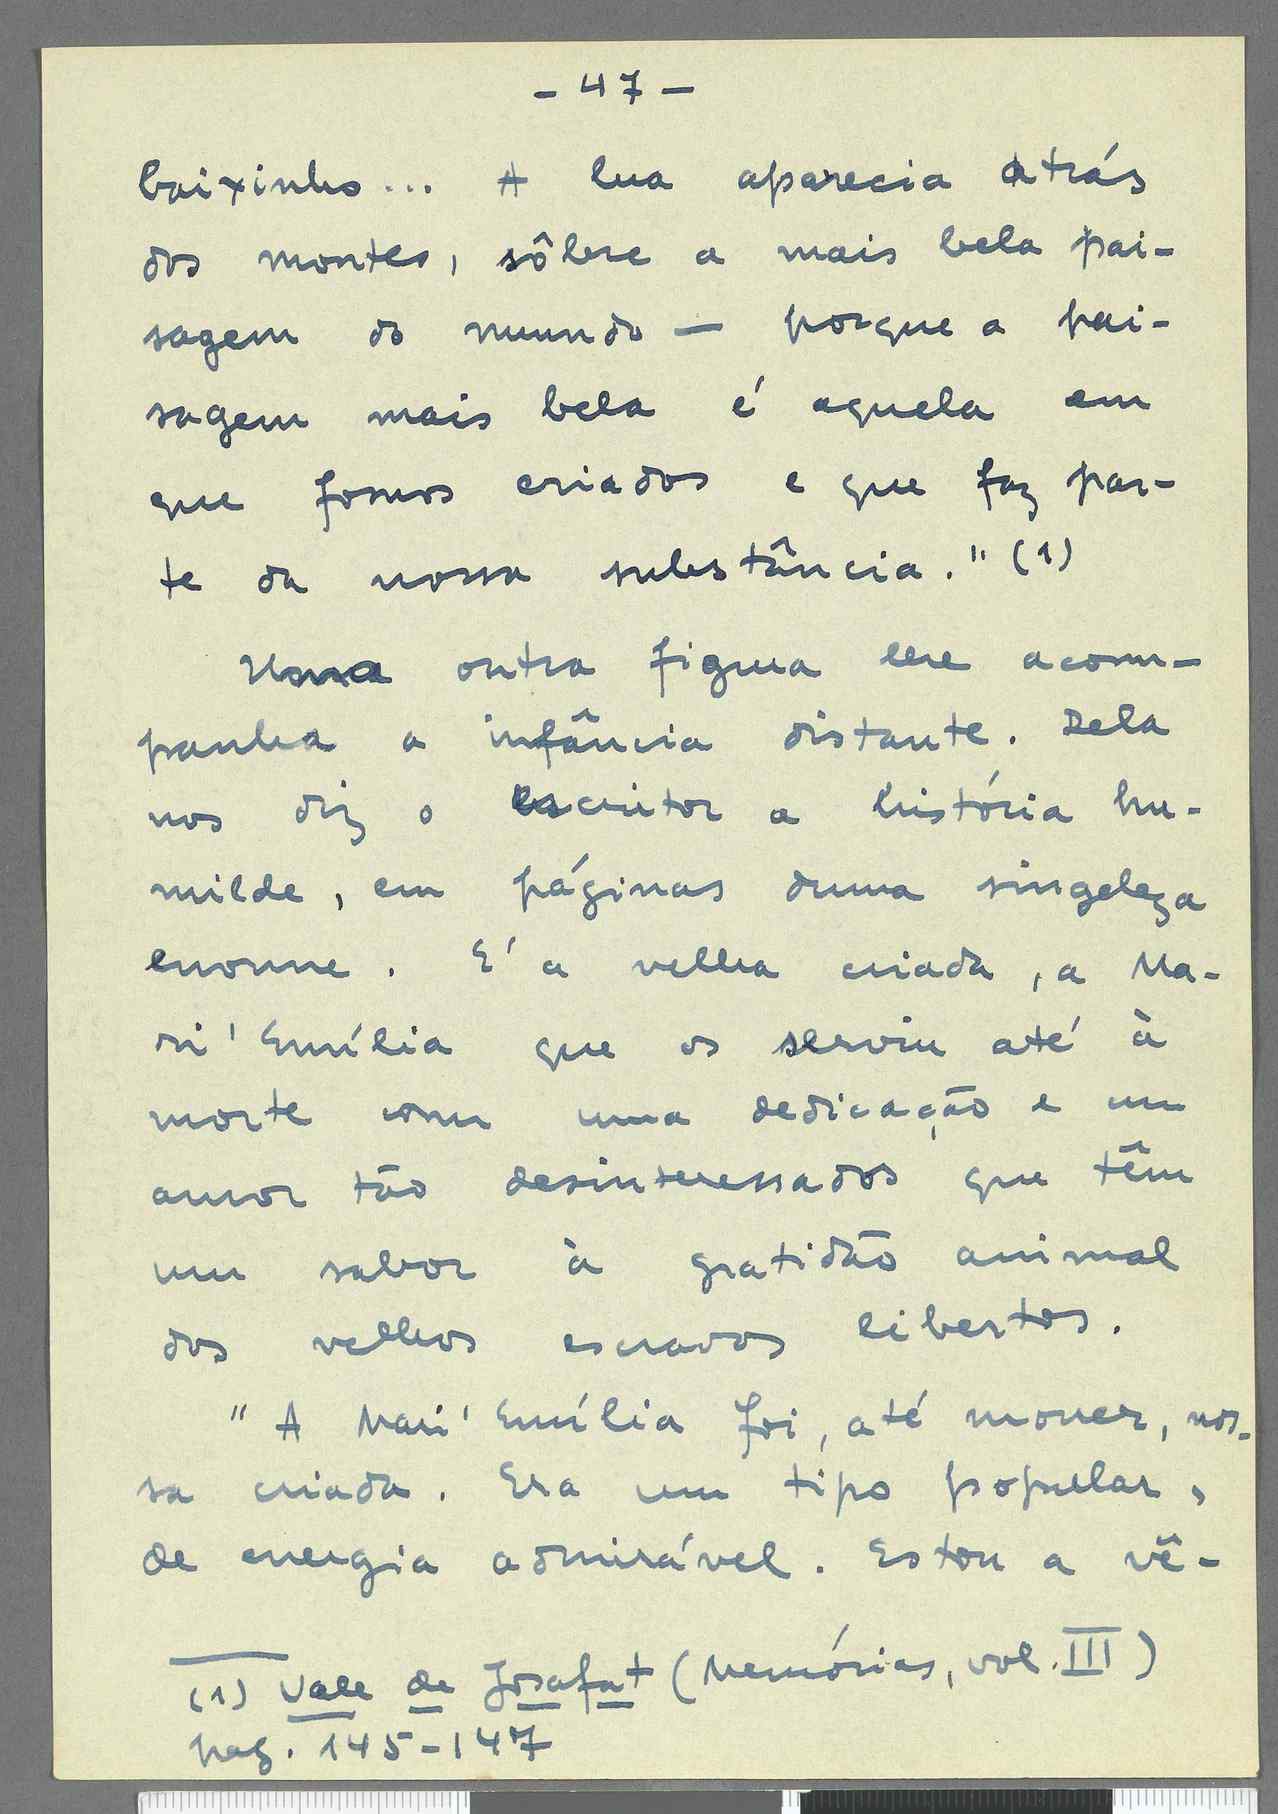 - 47 -
baixinho... A lua aparecia atrás
dos montes, sôbre a mais bela pai-
sagem do mundo — porque a pai-
sagem mais bela é aquela em
que fomos criados e que faz par-
te da nossa substância." (1)
Uma outra figura lhe acom-
panha a infância distante. Dela
nos diz o escritor a história hu-
milde, em páginas duma singeleza
enorme. É a velha criada, a Ma-
ri' Emília que os serviu até à
morte com uma dedicação e um
amor tão desinteressados que têm
um sabor à gratidão animal
dos velhos escravos libertos.
"A Mari' Emília foi, até morrer, nos-
sa criada. Era um tipo popular,
de energia admirável. Estou a vê-
(1) Vale de Josafat (Memórias, vol. III)
pag. 145-147